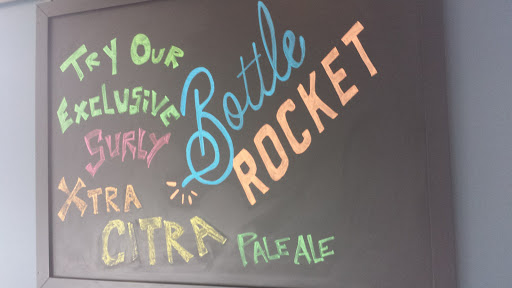 Try Our
Exclusive
Surly
Xtra
Citra
Pale Ale
Bottle
ROCKET